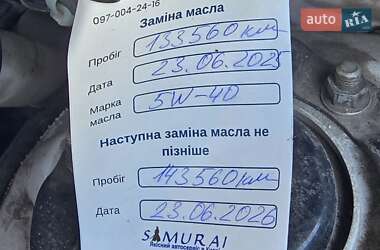 auto RIA
097-004-24-16
Заміна масла
Пробіг 133560 км
23.06.2025
Марка масла 5W-40
Наступна заміна масла не
пізніше
Пробіг 143560 км
23.06.2026
SAMURAI
Якісний автосервіс в